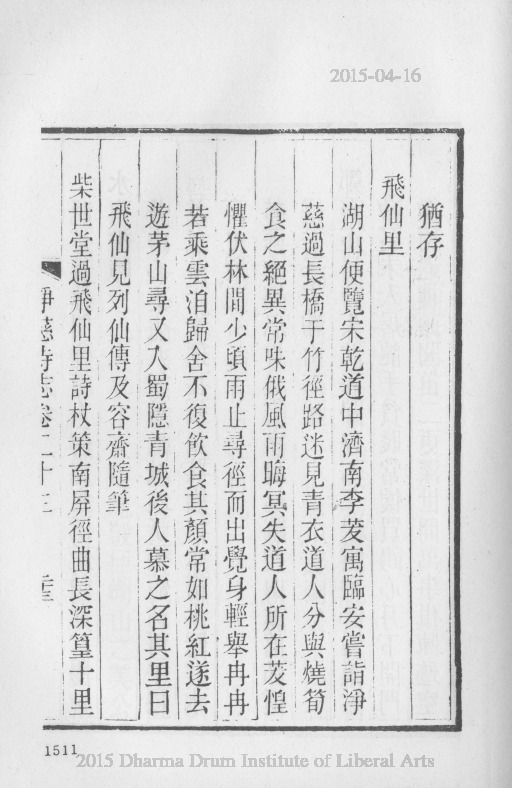 2015-04-16
猶存
飛仙里
湖山便覽宋乾道中濟南李芨寓臨安嘗詣淨
慈過長橋于竹徑路迷見青衣道人分與燒筍
食之絕異常味俄風雨晦冥失道人所在芨惶
懼伏林間少頃雨止尋徑而出覺身輕舉冉冉
若乘雲洎歸舍不復飲食其顏常如桃紅遂去
遊茅山尋又入蜀隱青城後人慕之名其里曰
飛仙見列仙傳及容齋隨筆
柴世堂過飛仙里詩杖策南屏徑曲長深篁十里
淨慈寺志卷二十三
1511
2015 Dharma Drum Institute of Liberal Arts